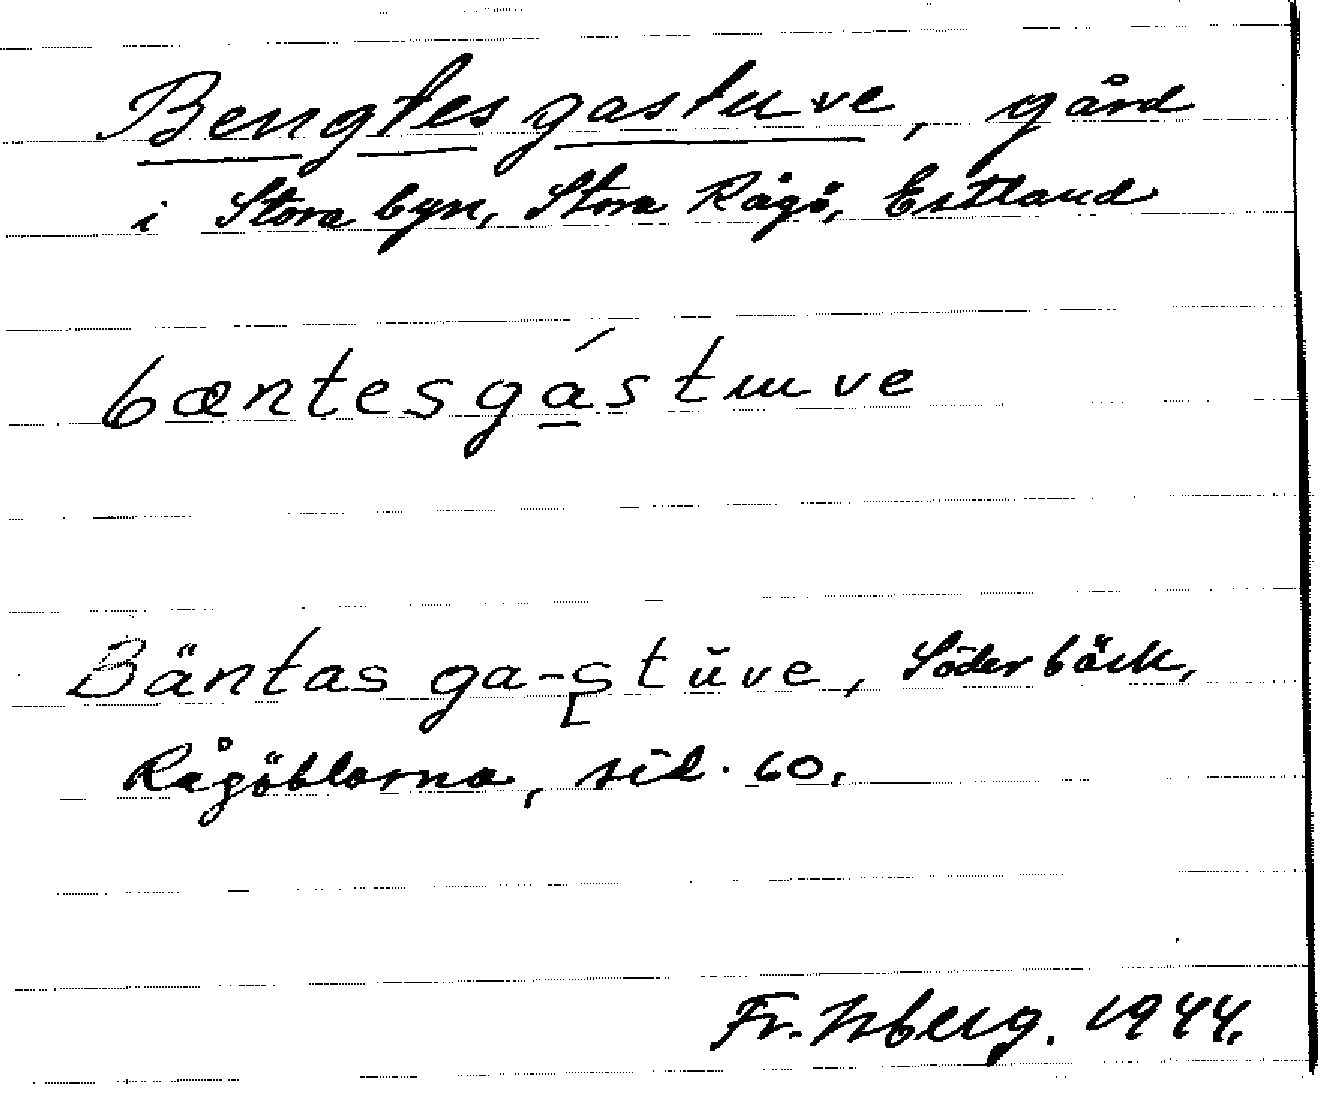 Bengtesgastuve, gård
i Stora byn, Stora Rågö, Estland
bæntesgá̱stɯve
Bäntas ga-stŭve, Söderbäck,
Rågöborna, sid. 60.
Fr. 1944.